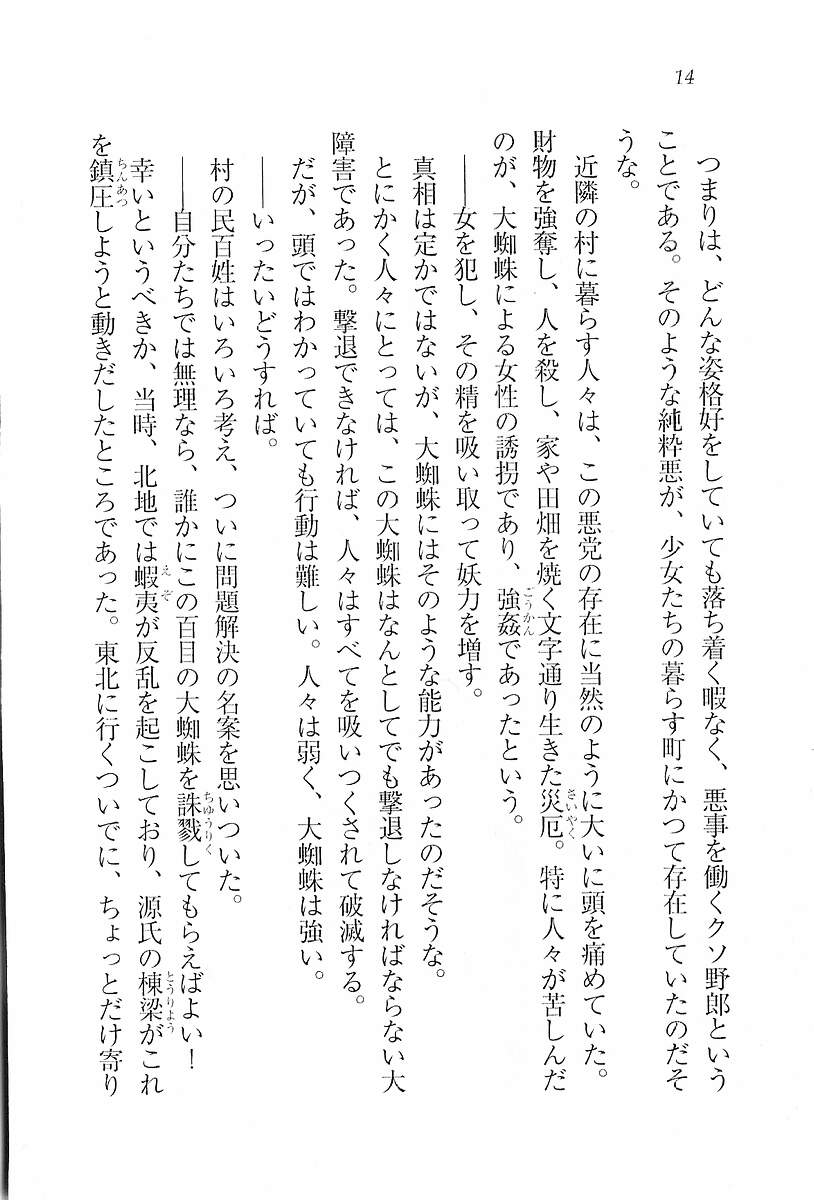 14
つまりは、どんな姿格好をしていても落ち着く暇なく、悪事を働くクソ野郎という
ことである。そのような純粋悪が、少女たちの暮らす町にかつて存在していたのだそ
うな。
近隣の村に暮らす人々は、この悪党の存在に当然のように大いに頭を痛めていた。
財物を強奪し、人を殺し、家や田畑を焼く文字通り生きた災厄。特に人々が苦しんだ
のが、大蜘蛛による女性の誘拐であり、強姦であったという。
――女を犯し、その精を吸い取って妖力を増す。
真相は定かではないが、大蜘蛛にはそのような能力があったのだそうな。
とにかく人々にとっては、この大蜘蛛はなんとしてでも撃退しなければならない大
障害であった。撃退できなければ、人々はすべてを吸いつくされて破滅する。
だが、頭ではわかっていても行動は難しい。人々は弱く、大蜘蛛は強い。
――いったいどうすれば。
村の民百姓はいろいろ考え、ついに問題解決の名案を思いついた。
――自分たちでは無理なら、誰かにこの百目の大蜘蛛を誅戮してもらえばよい！
幸いというべきか、当時、北地では蝦夷が反乱を起こしており、源氏の棟梁がこれ
を鎮圧しようと動きだしたところであった。東北に行くついでに、ちょっとだけ寄り